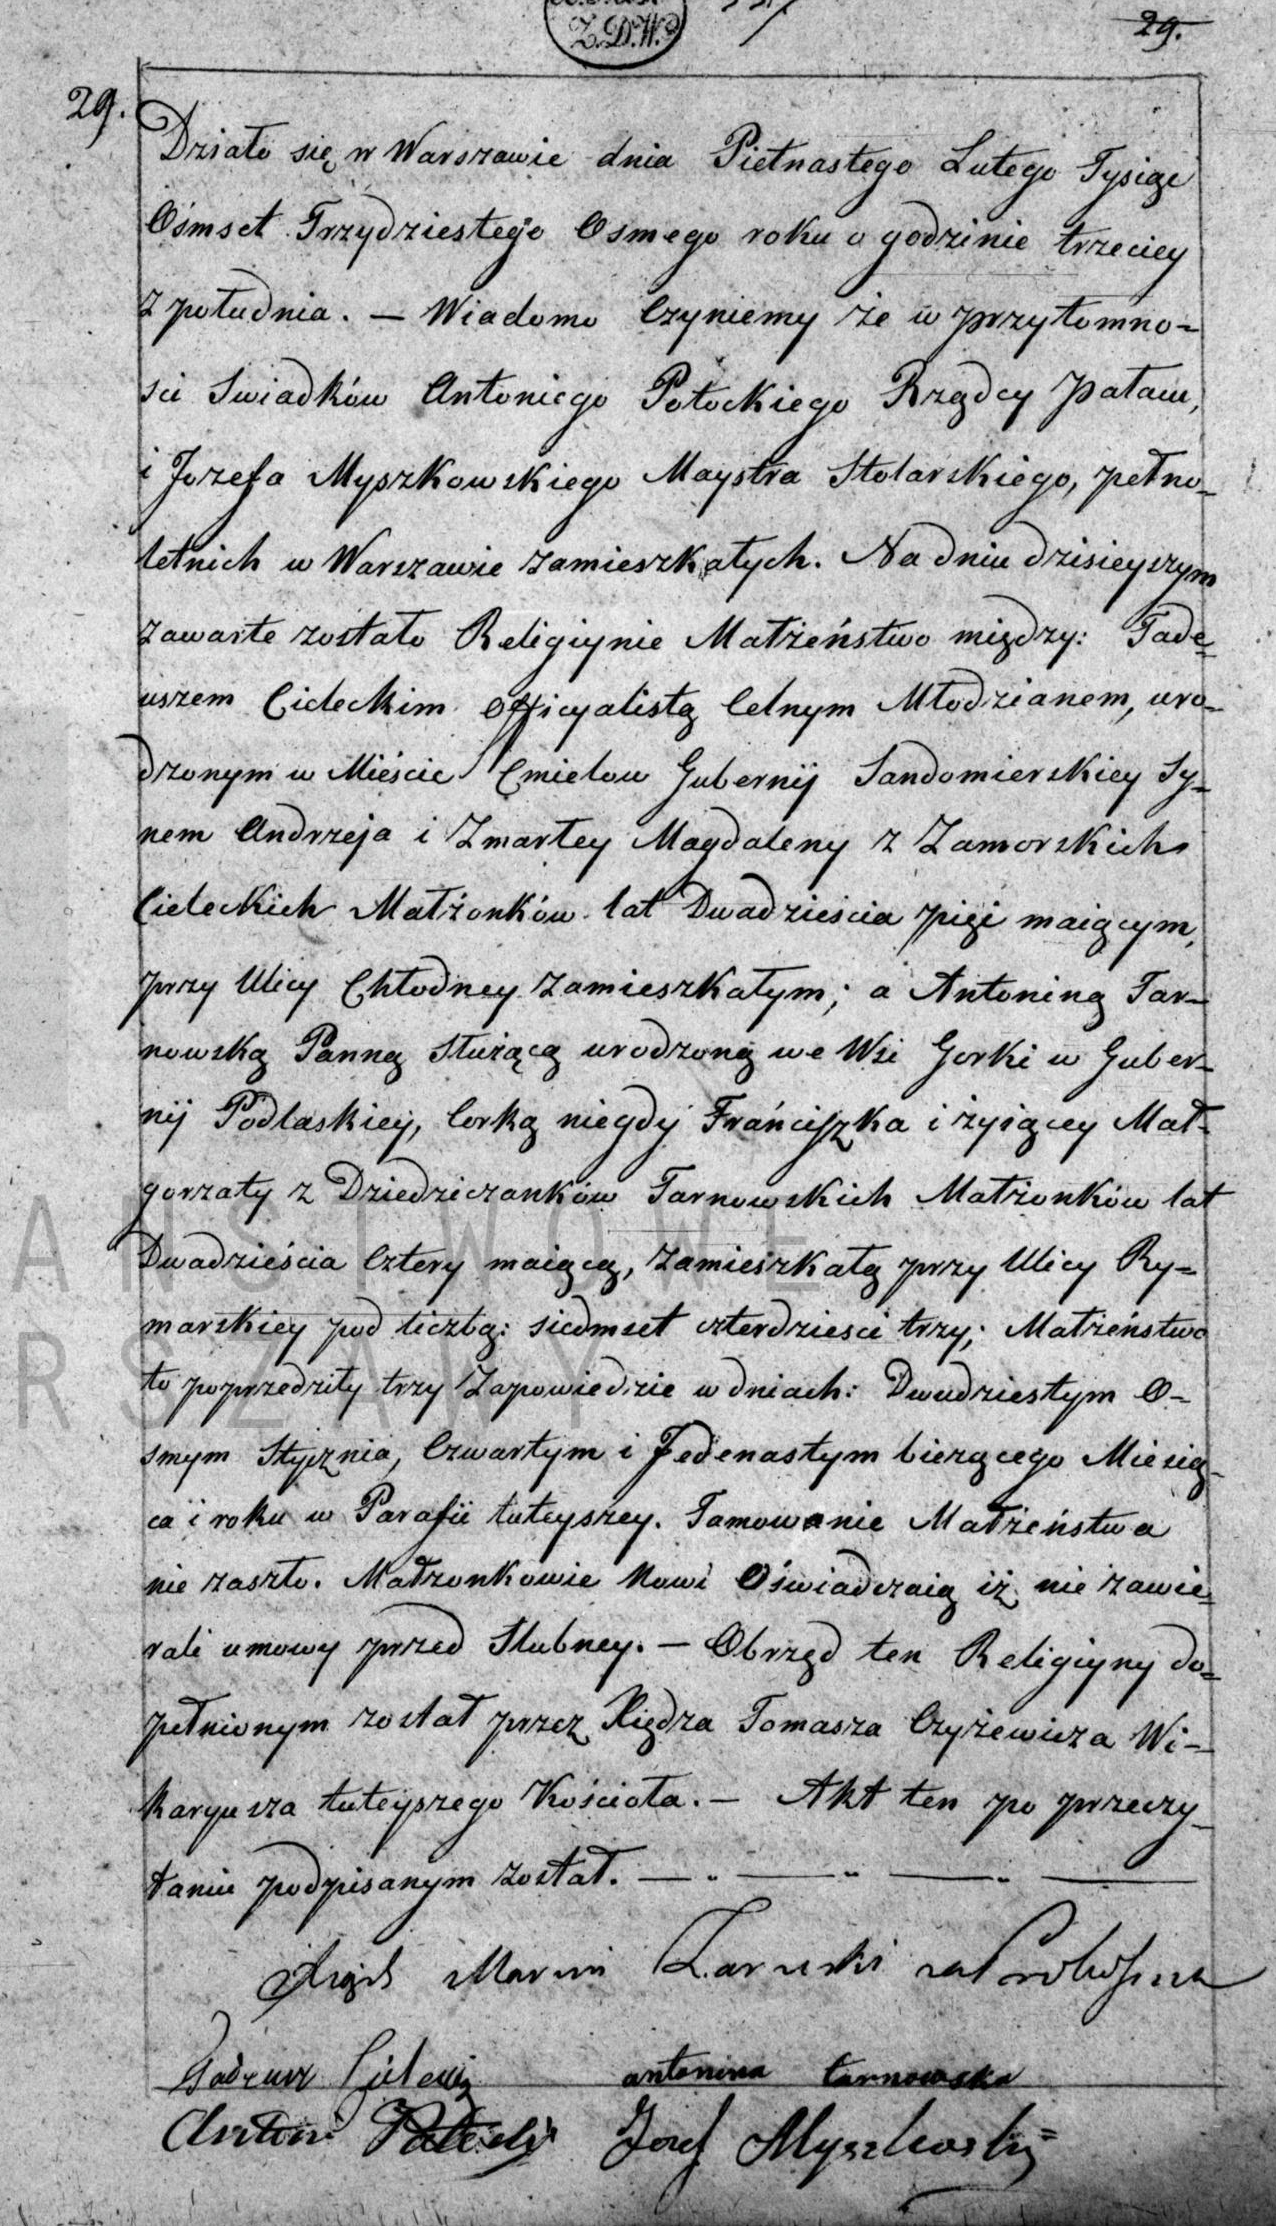 Z.D.W.
29.
29.
Działo się w Warszawie dnia Pietnastego Lutego Tysiąc
Ośmset Trzydziestego Osmego roku o godzinie trzeciey
z południa. — Wiadomo Czyniemy że w przytomno-
sci Swiadków Antoniego Potockiego Rządcy Pałacu,
i Jozefa Myszkowskiego Maystra Stolarskiego, pełno-
letnich w Warszawie zamieszkałych. Na dniu dzisieyszym
zawarte zostało Religiynie Małżeństwo między: Tade-
uszem Cieleckim Officyalistą Celnym Młodzianem, uro-
dzonym w Mieście Cmielow Gubernij Sandomierskiey Sy-
nem Andrzeja i Zmarłey Magdaleny z Zamorskich
Cieleckich Małżonków lat Dwadzieścia pięć maiącym,
przy Ulicy Chłodney zamieszkałym; a Antoniną Tar-
nowską Panną Służącą urodzoną we Wsi Gorki w Guber-
nij Podlaskiey, Corką niegdy Franciszka i żyiącey Mał-
gorzaty z Dziedziczanków Tarnowskich Małżonków lat
Dwadzieścia Cztery maiącą, zamieszkałą przy Ulicy Ry-
marskiey pod liczbą: siedmset czterdziesci trzy; Małżeństwo
to poprzedziły trzy Zapowiedzie w dniach: Dwudziestym O-
smym Stycznia, Czwartym i Jedenastym bieżącego Miesią-
ca i roku w Parafii tuteyszey. Tamowanie Małżeństwa
nie zaszło. Małżonkowie Nowi Oświadczaią iż nie zawie-
rali umowy przed Slubney. — Obrząd ten Religiyny do-
pełnionym został przez Xiędza Tomasza Czyżewicza Wi-
karyusza tuteyszego Kościoła. — Akt ten po przeczy-
taniu podpisanym został.
Xiądz Marcin Zaruski
Tadeusz Cielecki antonina tarnowska
Antoni Potocki Jozef Myszkoski
AŃSTWOWE
RSZAWY